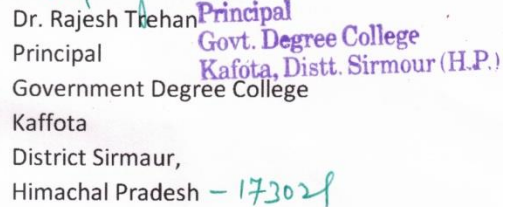 Dr. Rajesh Trehan
Principal
Government Degree College
Kaffota
District Sirmaur,
Himachal Pradesh – 173029
Principal
Govt. Degree College
Kafota, Distt. Sirmour (H.P.)